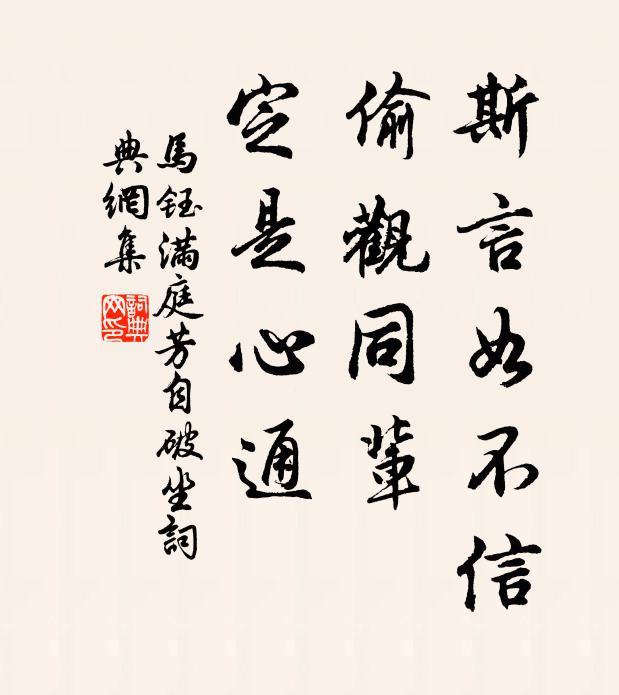 斯言如不信
偷觀同輩
定是心通
馬鈺滿庭芳自破坐詞
典網集
詞典
网印